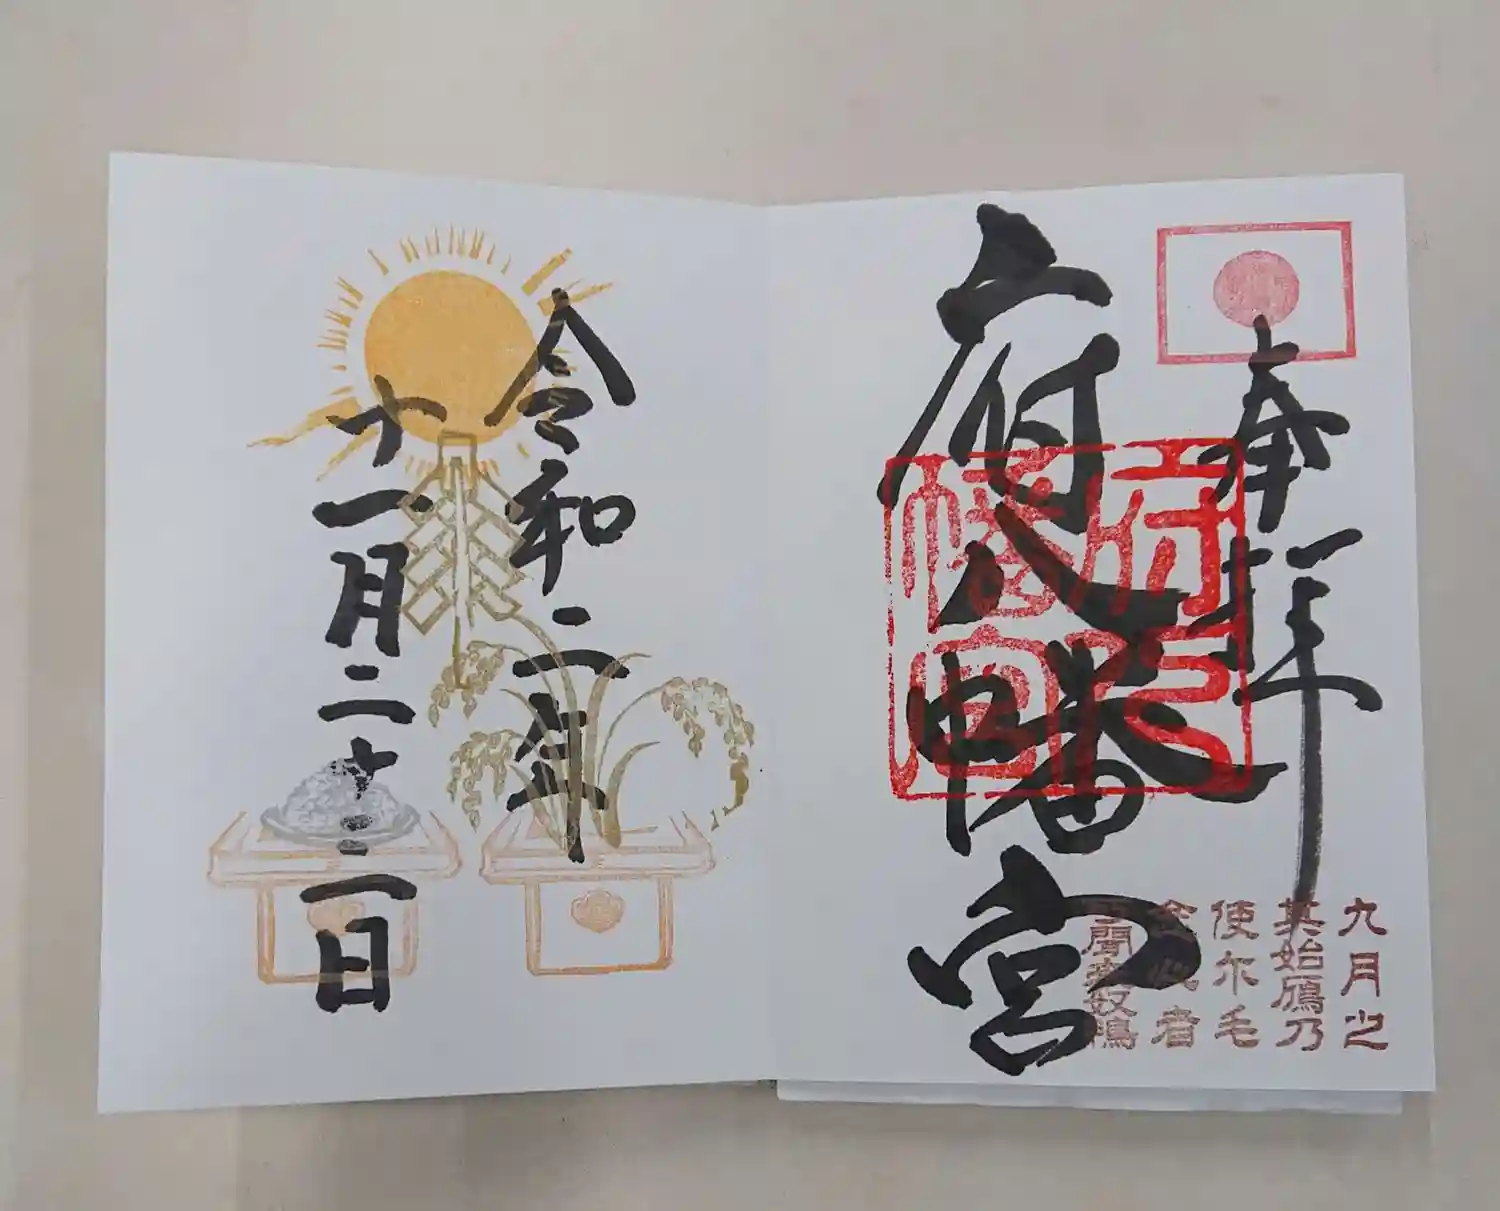 奉拝
府八幡宮
府八
幡宮
九月之
其始鴈乃
使尓毛
者
聞来奴鴨
令和二年
十一月二十二日